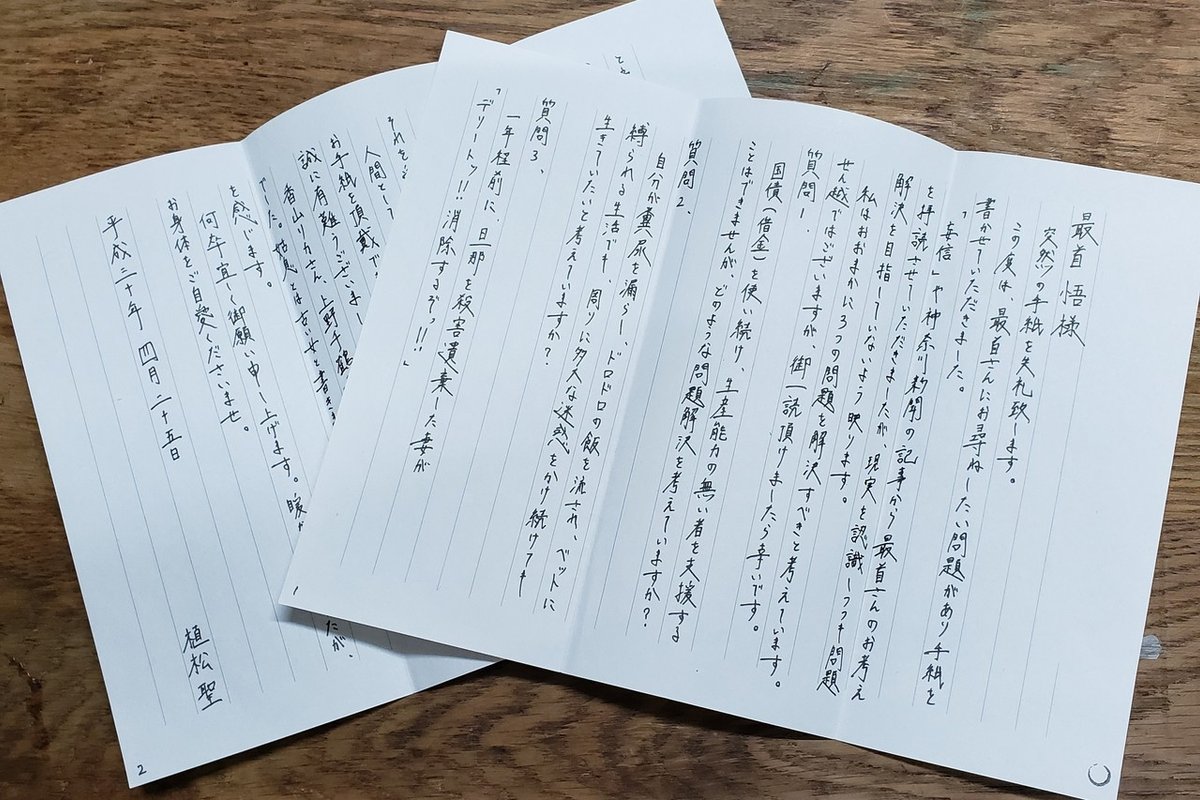 最首 悟様
突然の手紙を失礼致します。
この度は、最首さんにお尋ねしたい問題があり手紙を
書かせていただきました。
「妄信」や神奈川新聞の記事から最首さんのお考え
を拝読させていただきましたが、現実を認識しつつも問題
解決を目指していないよう映ります。
私はおおまかに3つの問題を解決すべきと考えています。
せん越ではございますが、御一読頂けましたら幸いです。
質問1.
国債(借金)を使い続け、生産能力の無い者を支援する
ことはできませんが、どのような問題解決を考えていますか?
質問2、
自分が糞尿を漏らし、ドロドロの飯を流され、ベットに
縛られる生活でも、周りに多大な迷惑をかけ続けても
生きていたいと考えていますか?
質問3、
一年程前に、旦那を殺害遺棄した妻が
「デリートッ!!消除するぞっ!!」
1
それを
人間として
お手紙を頂戴
誠に有難うございまし
香山リカさん、上野千鶴
でした。
を感じます。
何卒宜しく御願い申し上げます。暖か
お身体をご自愛くださいませ。
平成三十年 四月二十五日
植松聖
2